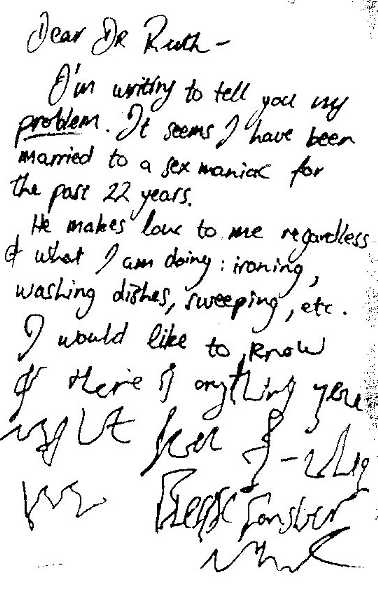 Dear Dr Ruth -
I'm writing to tell you my
problem. It seems I have been
married to a sex maniac for
the past 22 years.
He makes love to me regardless
of what I am doing: ironing,
washing dishes, sweeping, etc.
I would like to know
if there is anything you